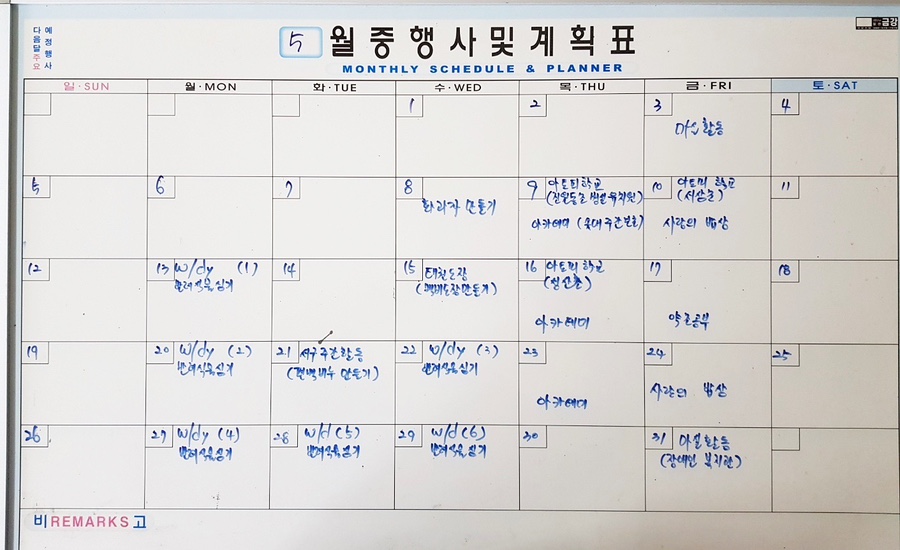 예정행사
다음달주요
5 월중행사및계획표
MONTHLY SCHEDULE & PLANNER
금강
일·SUN 월·MON 화·TUE 수·WED 목·THU 금·FRI 토·SAT
1 2 3 4
활동
5 6 7 8 9 10 11
아토피 학교 아토피 학교
화과자 만들기
아카데미 사랑의 밥상
12 13 w/dy (1) 14 15 16 아토피 학교 17 18
반려식물심기 (만들기)
아카데미 약초공부
19 20 w/dy (2) 21 서구 주간활동 22 w/dy (3) 23 24 25
반려식물심기 (편백베개 만들기) 반려식물심기
아카데미 사랑의 밥상
26 27 w/dy (4) 28 w/d (5) 29 w/d (6) 30 31 마실활동
반려식물심기 반려식물심기 반려식물심기 (장애인 복지관)
비 REMARKS 고